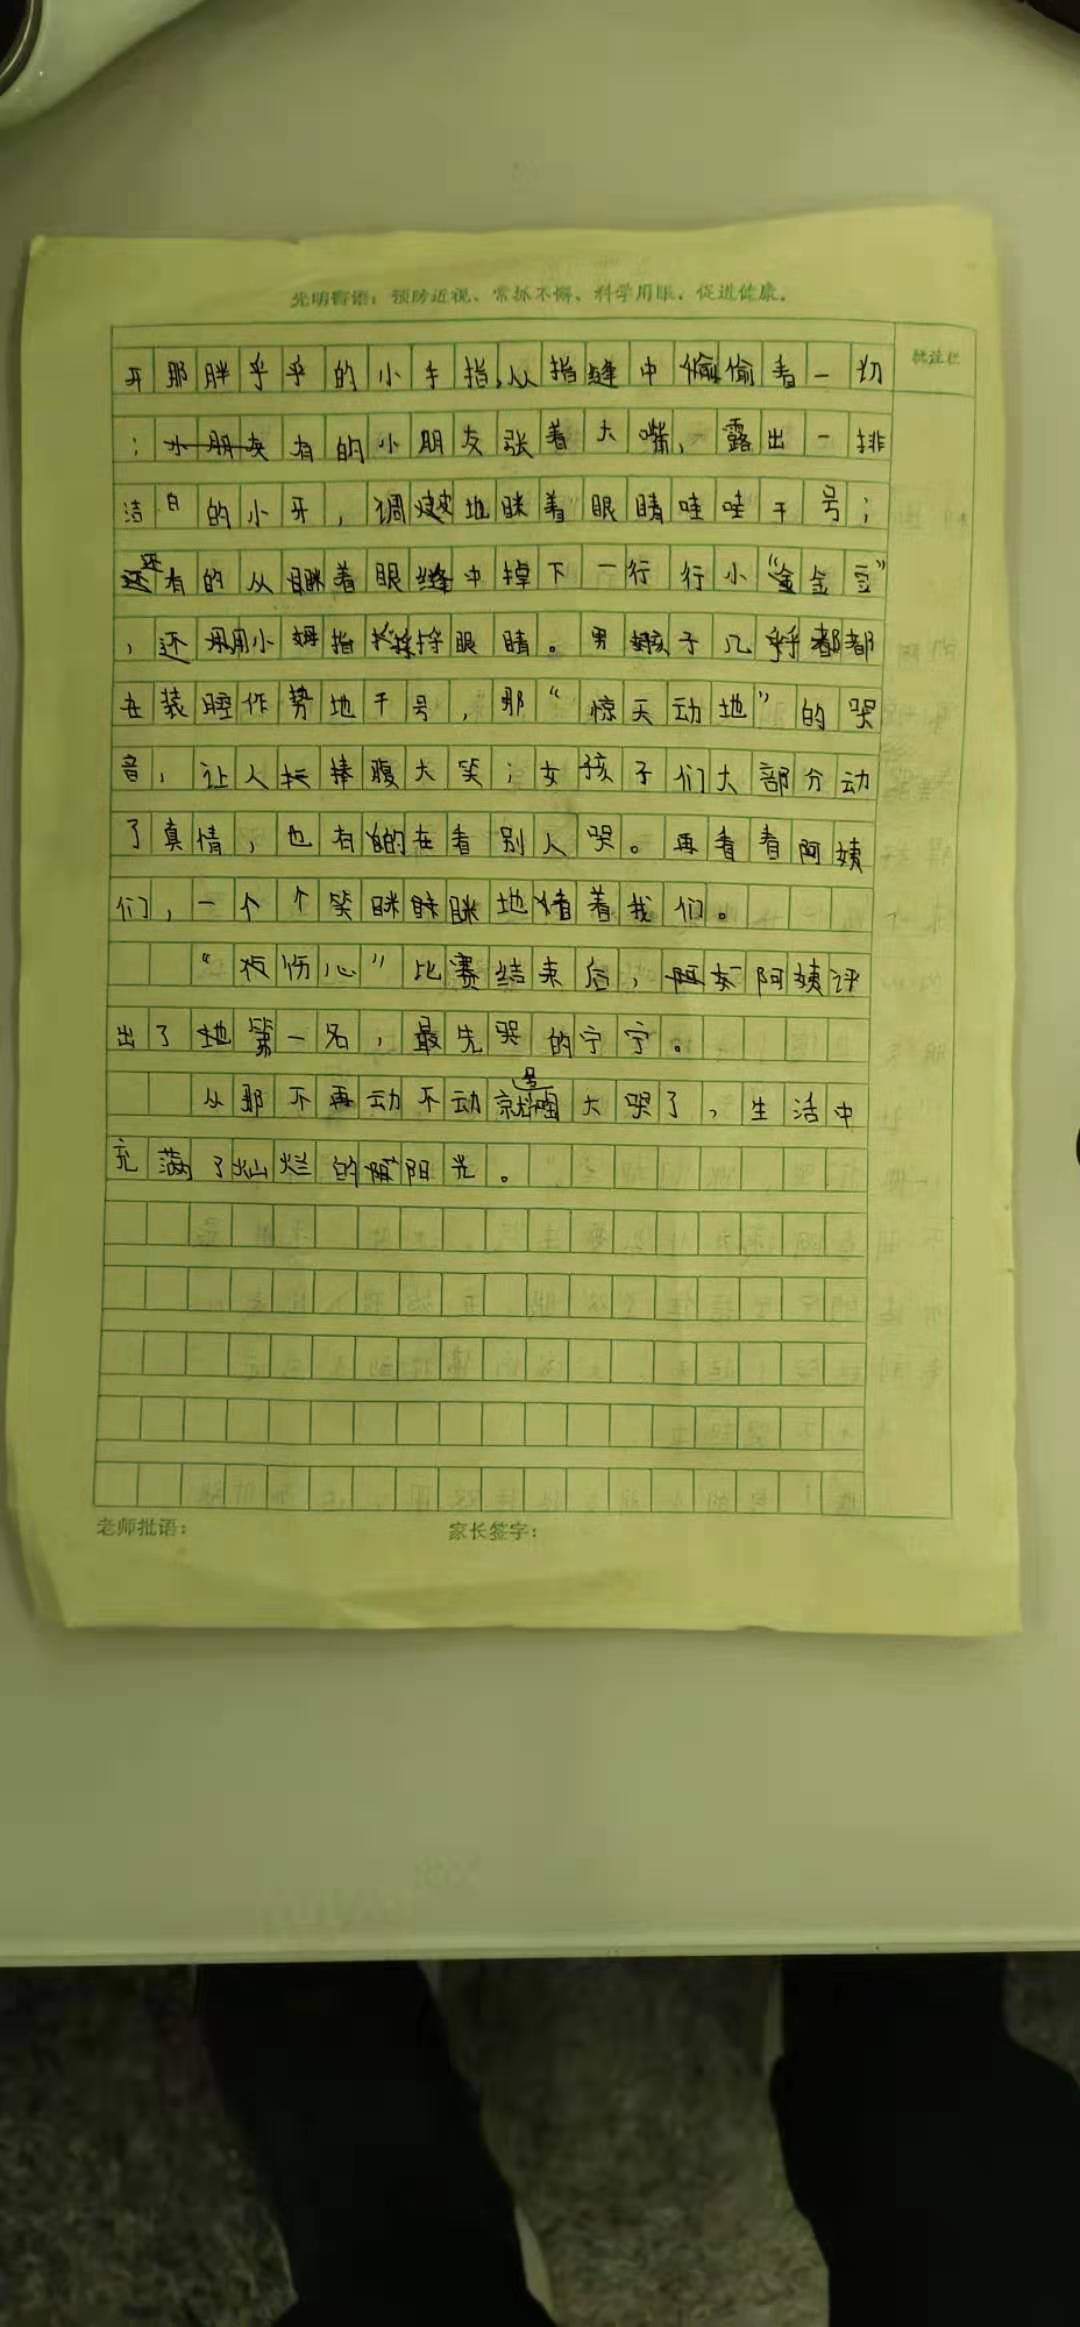 光明寄语：预防近视、常抓不懈、科学用眼、促进健康。
批注栏
开那胖乎乎的小手指,从指缝中偷偷看一切
；有的小朋友张着大嘴，露出一排
洁白的小牙，调皮地眯着眼睛哇哇干号；
还有的从眯着眼缝中掉下一行行小“金豆”
，还用小拇指揉眼睛。男孩子几乎都
在装腔作势地干号，那“惊天动地”的哭
音，让人捧腹大笑；女孩子们大部分动
了真情，也有的在看别人哭。再看看阿姨
们，一个个笑眯眯地看着我们。
“扮伤心”比赛结束后，阿姨评
出了第一名，最先哭的宁宁。
从那不再动不动就号啕大哭了，生活中
充满了灿烂的阳光。
老师批语：
家长签字：